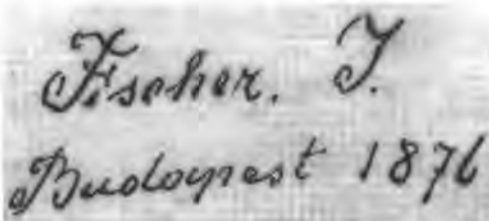 Fischer. J.
Budapest 1876